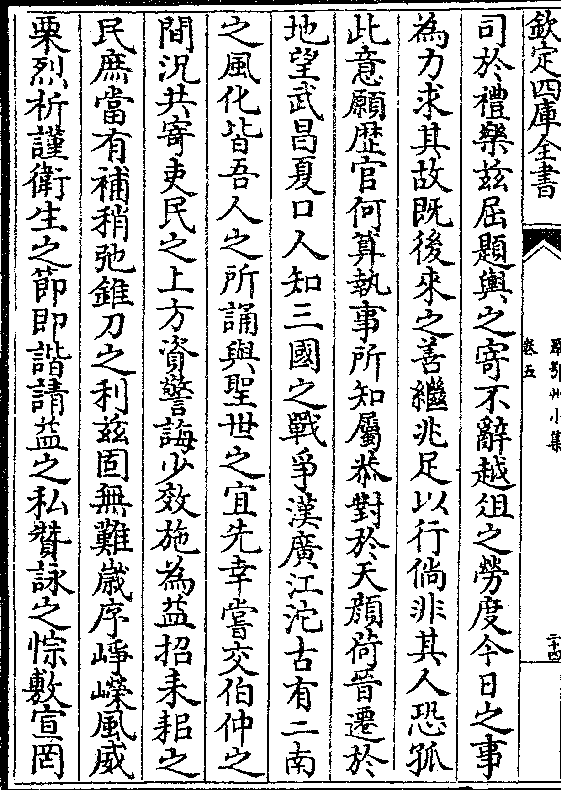 欽定四庫全書
羅鄂州小集
卷五
二十四
司於禮樂兹屈題輿之寄不辭越俎之勞度今日之事
為力求其故既後來之善繼兆足以行倘非其人恐孤
此意願歴官何算執事所知屬恭對於天顔荷晉遷於
地望武昌夏口人知三國之戰爭漢廣江沱古有二南
之風化皆吾人之所誦與聖世之宜先幸嘗交伯仲之
間況共寄吏民之上方資警誨少效施為益招耒耜之
民庶當有補稍弛錐刀之利兹固無難歲序崢嶸風威
栗烈祈謹衛生之節即諧請益之私贊詠之悰敷宣罔